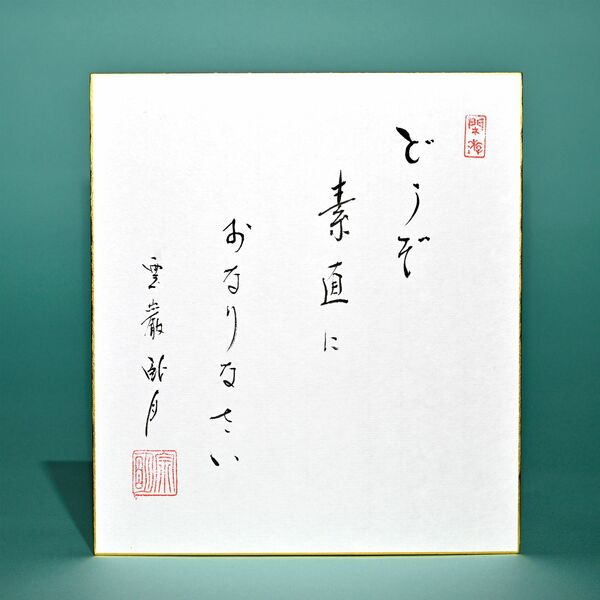 閑遊
どうぞ
素直に
おなりなさい
雲巌
月